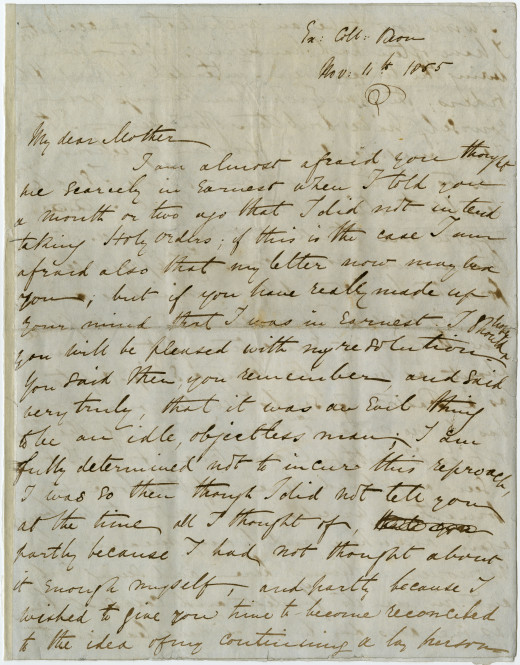 Ex: Coll: Oxon
Nov: 11th 1855
My dear Mother
I am almost afraid you thought
me scarcely in earnest when I told you
a month or two ago that I did not intend
taking Holy orders; if this is the case I am
afraid also that my letter now may vex
you; but if you have really made up
your mind that I was in earnest I
you will be pleased with my resolution
You said then, you remember and said
very truly, that it was an evil thing
to be an idle, objectless man; I am
fully determined not to incure this reproach,
I was so then though I did not tell you
at the time all I thought of,
partly because I had not thought about
it enough myself, and partly because I
wished to give you time to become reconciled
to the idea of my continuing a lay person